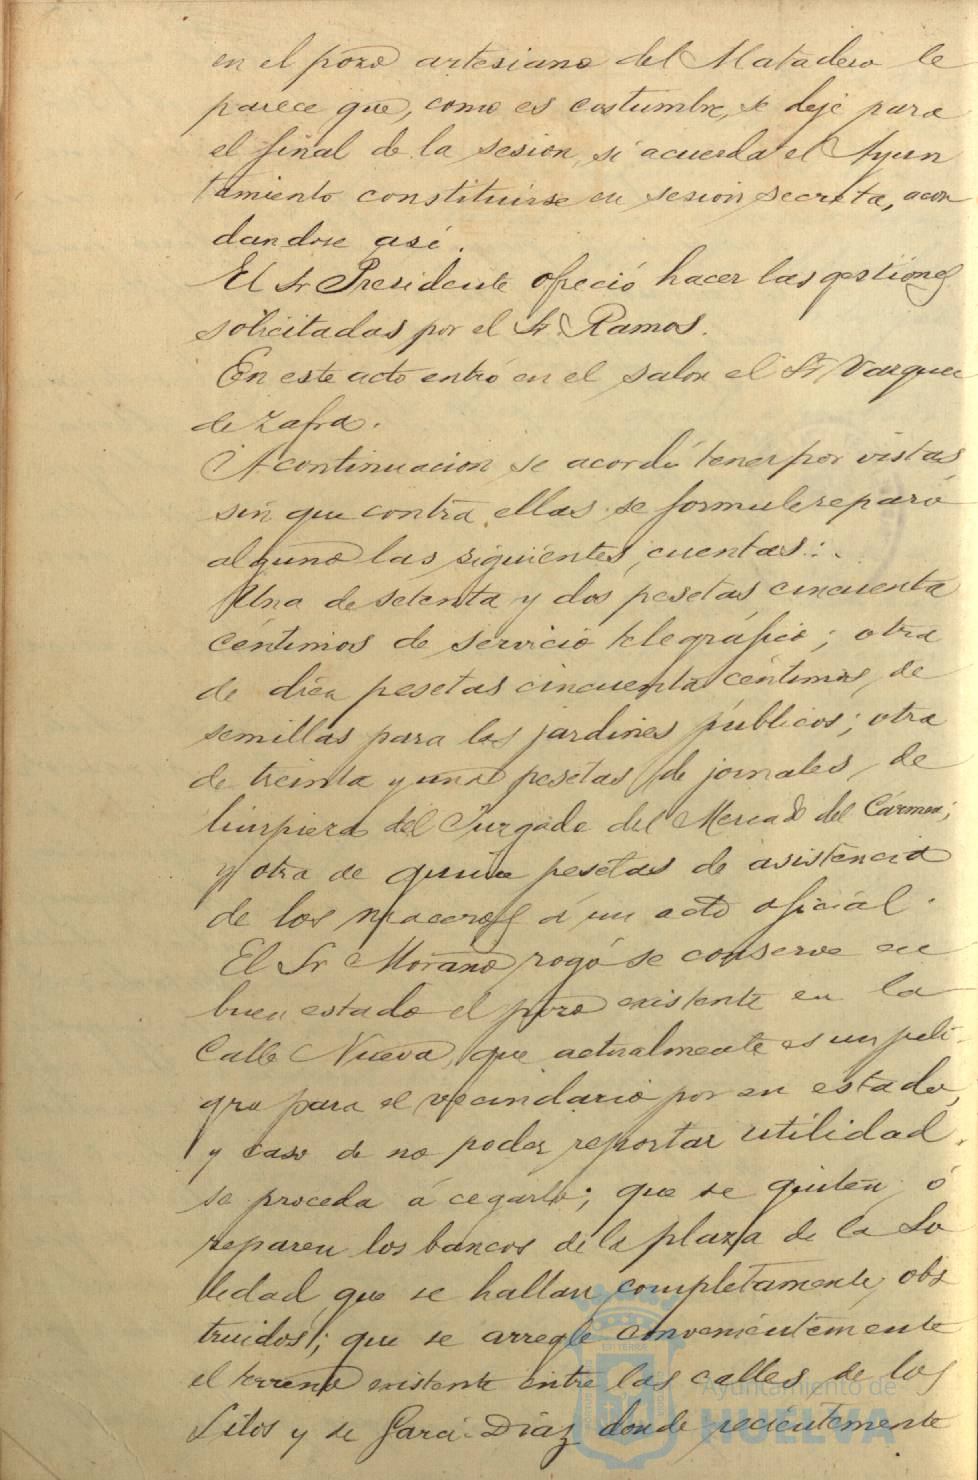 en el pozo artesiano del Matadero le
parece que, como es costumbre, se deje para
el final de la sesion, si acuerda el Ayun
tamiento constituirse en sesion secreta, acor
dandose asi.
El Sr Presidente ofreció hacer las gestiones
solicitadas por el Sr. Ramos.
En este acto entró en el salon el Sr Vazquez
de Zafra.
A continuacion se acordó tener por vistas
sin que contra ellas se formule reparo
alguno las siguientes cuentas:
Una de setenta y dos pesetas cincuenta
centimos de servicio telegráfico; otra
de diez pesetas cincuenta céntimos, de
semillas para los jardines públicos; otra
de treinta y una pesetas de jornales, de
limpieza del Juzgado del Mercado del Cármen;
y otra de quince pesetas de asistencia
de los maceros á un acto oficial.
El Sr Morano rogó se conserve en
buen estado el pozo existente en la
Calle Nueva, que actualmente es un peli-
gro para el vecindario por su estado,
y caso de no poder reportar utilidad,
se proceda á cegarlo; que se quiten ó
reparen los bancos de la plaza de la So
ledad que se hallan completamente obs
truidos; que se arregle convenientemente
el terreno existente entre las calles de los
Silos y de Garci-Diaz donde recientemente
Ayuntamiento de
HUELVA